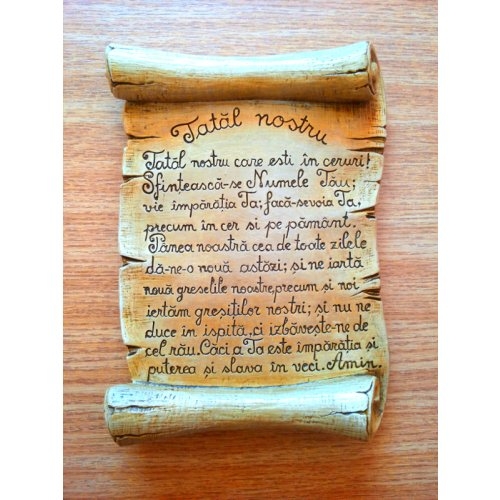 Tatăl nostru
Tatăl nostru care esti în ceruri!
Sfintească-se Numele Tău;
vie împărăția Ta; facă-sevoia Ta,
precum în cer si pe pământ.
Pânea noastră cea de toate zilele
dă-ne-o nouă astăzi; și ne iartă
nouă greselile noastre,precum și noi
iertăm greșiților nostri; și nu ne
duce în ispită,ci izbăvește-ne de
cel rău. Căci a Ta este împărăția și
puterea și slava în veci. Amin.